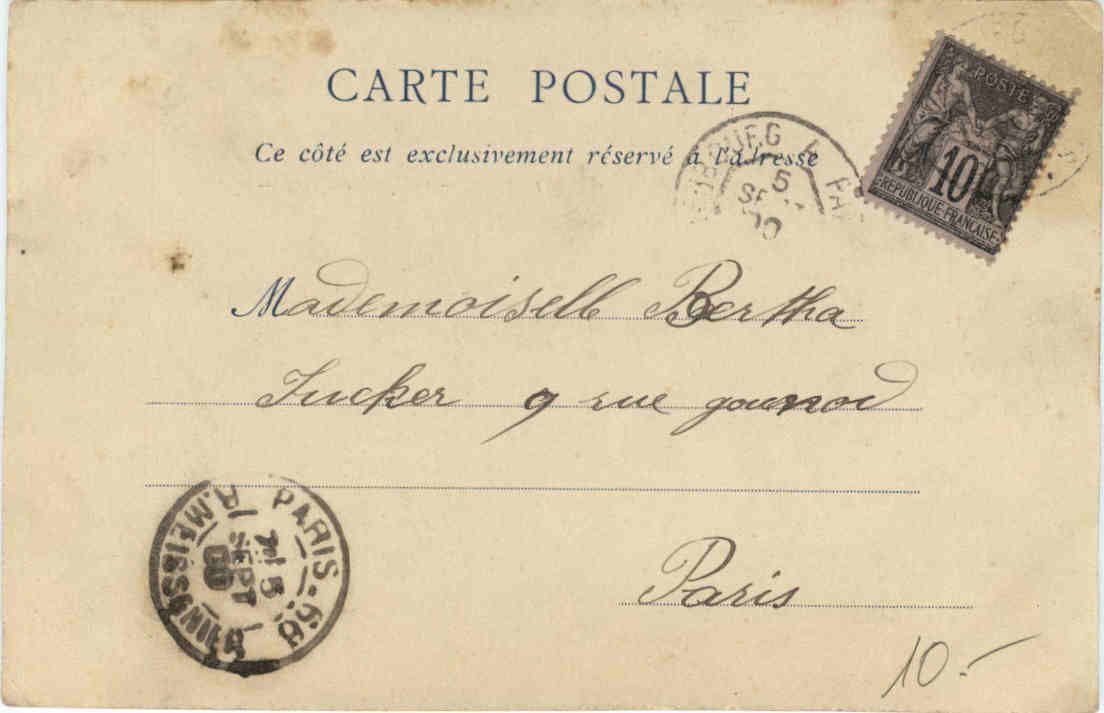 CARTE POSTALE
Ce côté est exclusivement réservé à l'adresse
POSTE
10
REPUBLIQUE FRANÇAISE
5
SEPT
00
Mademoiselle Bertha
Jucker 9 rue gounod
PARIS-69
R.MEISSONIER
5
SEPT
00
Paris
10.-